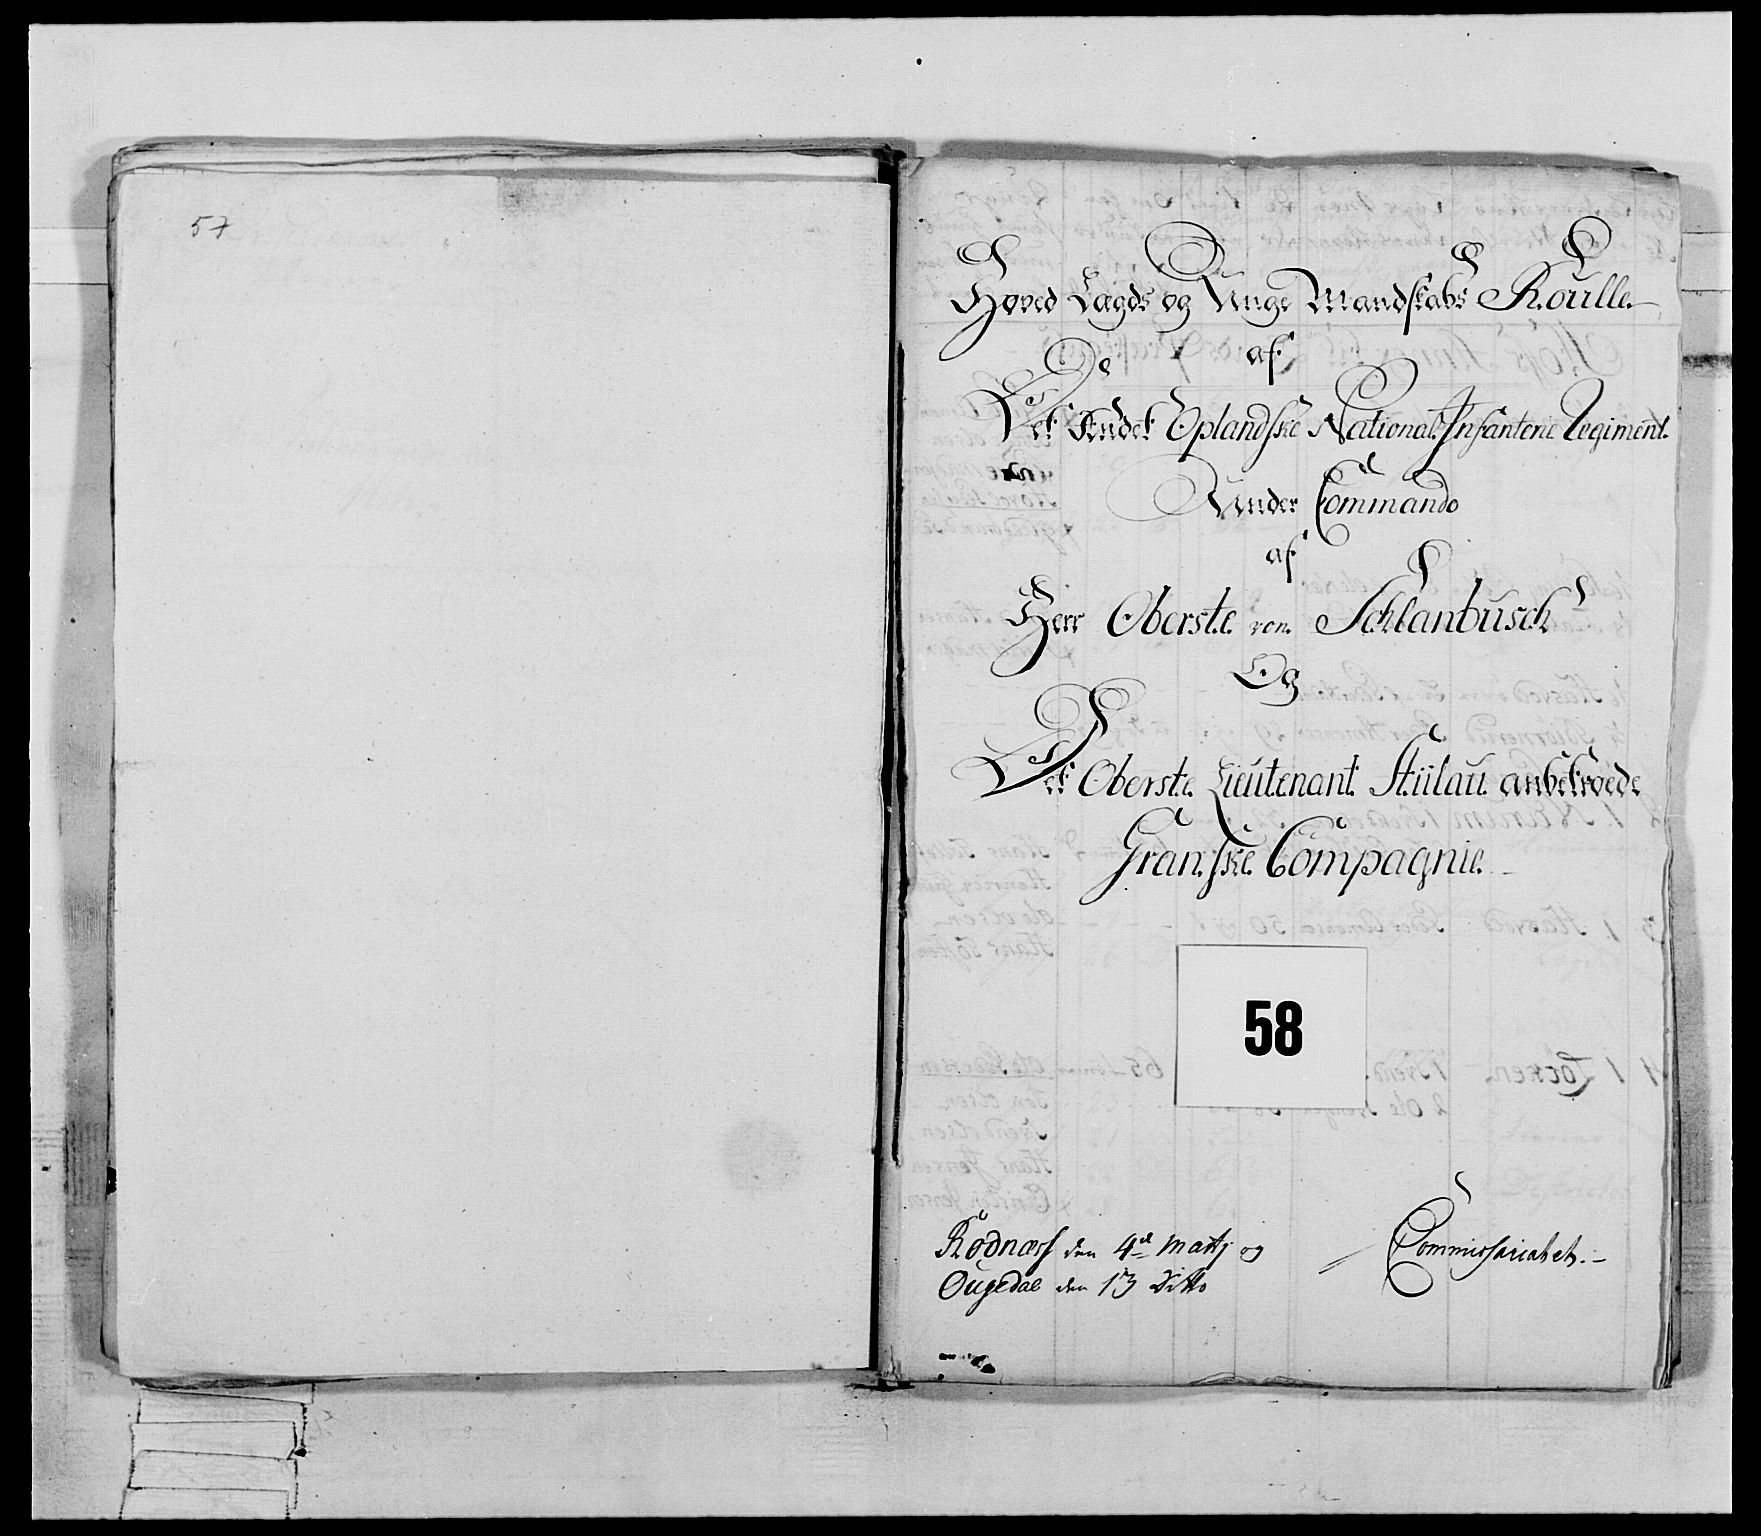 57
Hoved Lægds og Unge Mandskabs Roulle
af
Det Andet Oplandske National Infanterie Regiment.
Under Commando
af
Herr Oberste von Schlanbusch
Og
Det Oberste Lieutenant Stülau anbetroede
Granske Compagnie.
58
Rodnæss den 4de Martj og
Ougedal den 13 Ditto
Commissariatet.